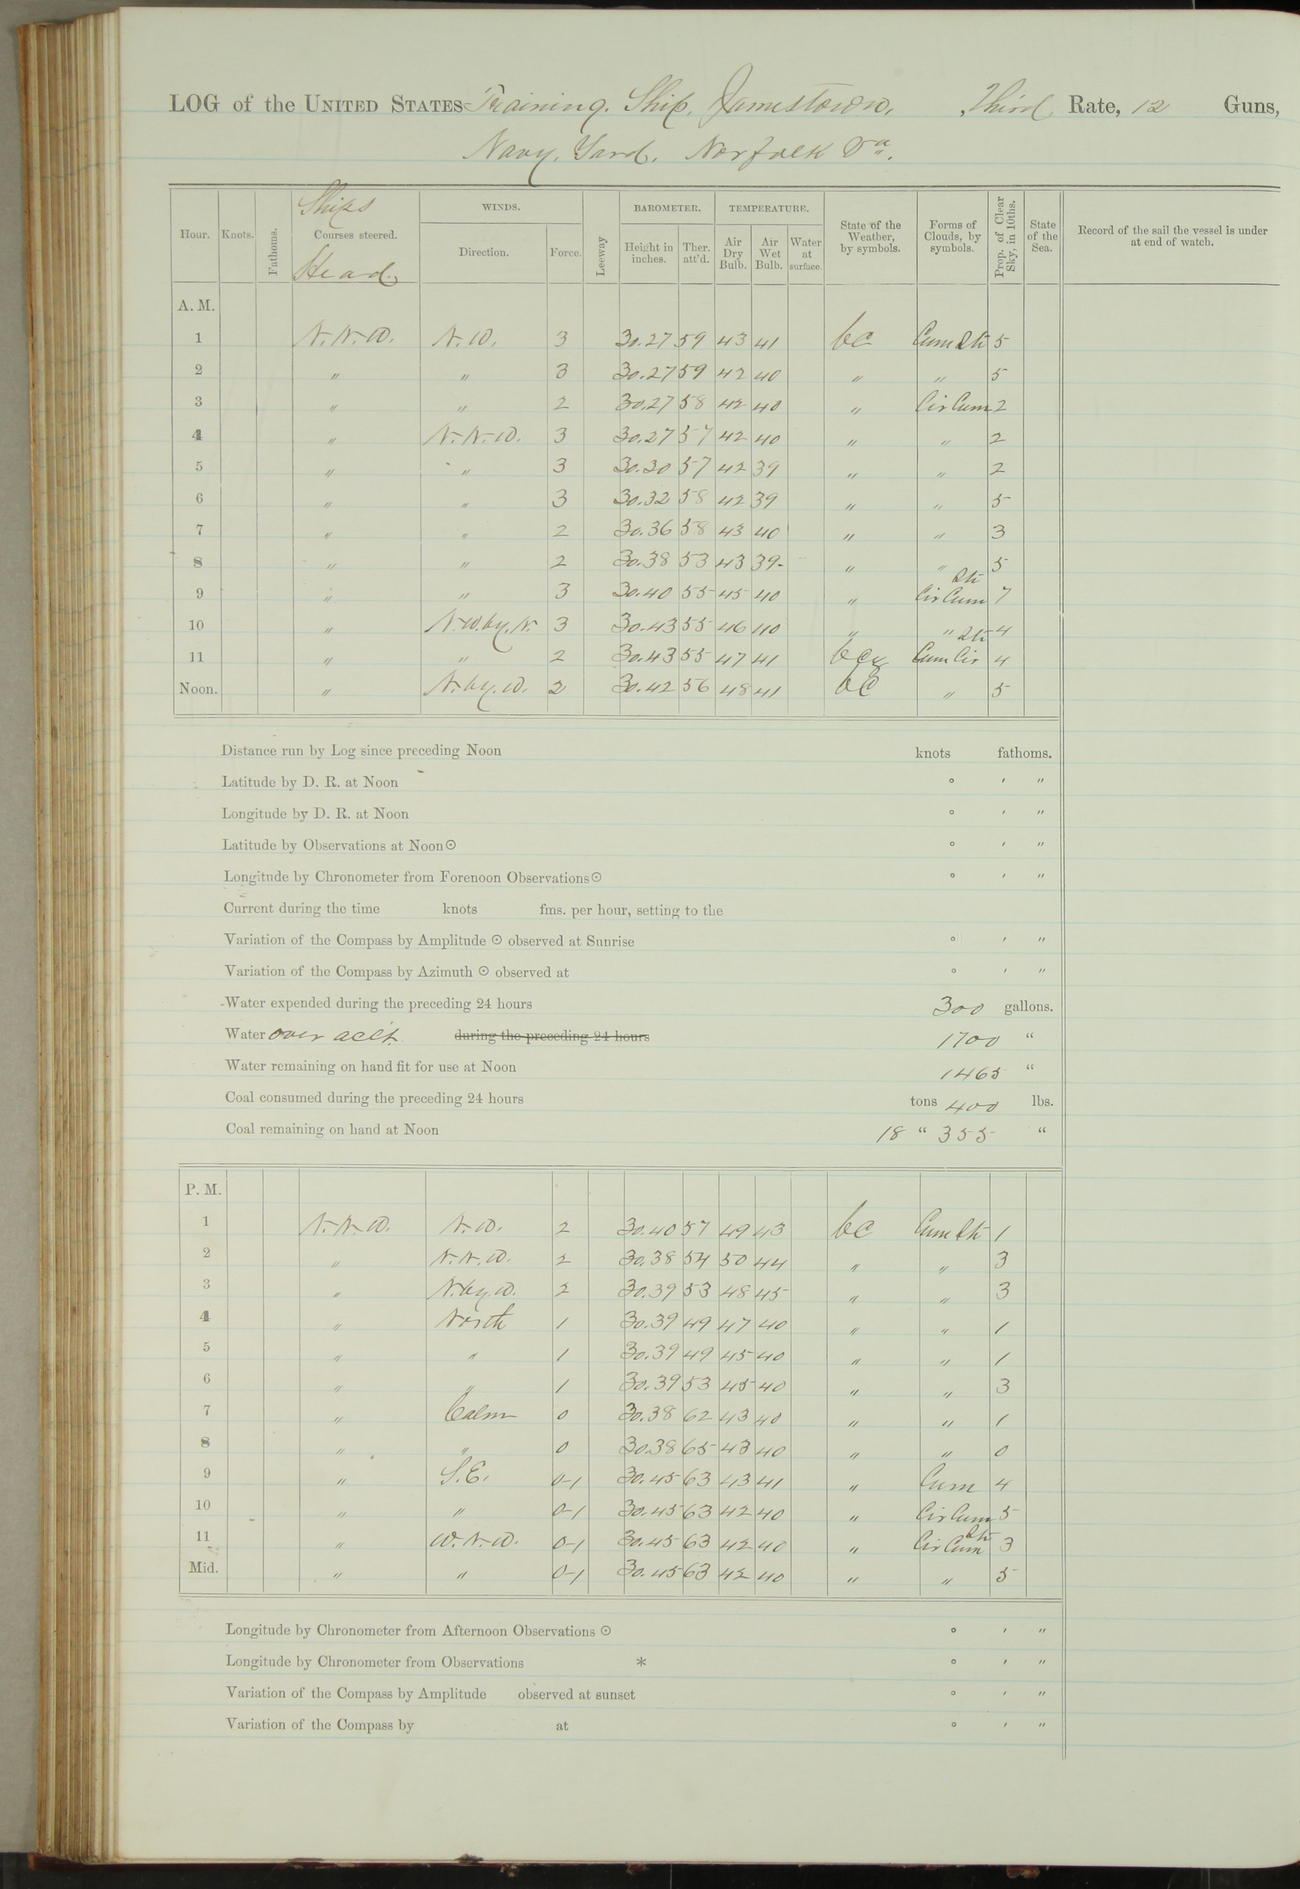 LOG of the UNITED STATES Training Ship, Jamestown, Third Rate, 12 Guns,
Navy Yard, Norfolk Va.
Hour. Knots. Fathoms. Ships Courses steered. Head. WINDS. Direction. Force. Leeway BAROMETER. Height in inches. Ther. att'd. TEMPERATURE. Air Dry Bulb. Air Wet Bulb. Water at surface. State of the Weather, by symbols. Forms of Clouds, by symbols. Prop. of Clear Sky, in 10ths. State of the Sea. Record of the sail the vessel is under at end of watch.
A. M.
1 N.N.W. N.W. 3 30.27 59 43 41 bc Cum Sti 5
2 " " 3 30.27 59 42 40 " " 5
3 " " 2 30.27 58 42 40 " Cir Cum 2
4 " N.N.W. 3 30.27 57 42 40 " " 2
5 " " 3 30.30 57 42 39 " " 2
6 " " 3 30.32 58 42 39 " " 5
7 " " 2 30.36 58 43 40 " " 3
8 " " 2 30.38 53 43 39 " " 5
9 " " 3 30.40 55 45 40 " Cir Cum Sti 7
10 " N.W. by N. 3 30.43 55 46 40 " " 4
11 " " 2 30.43 55 47 41 Cum Cir Sti 4
Noon. " N. by W. 2 30.42 56 48 41 bc " 5
Distance run by Log since preceding Noon knots fathoms.
Latitude by D. R. at Noon ° ′ ″
Longitude by D. R. at Noon ° ′ ″
Latitude by Observations at Noon ☉ ° ′ ″
Longitude by Chronometer from Forenoon Observations ☉ ° ′ ″
Current during the time knots fms. per hour, setting to the
Variation of the Compass by Amplitude ☉ observed at Sunrise ° ′ ″
Variation of the Compass by Azimuth ☉ observed at ° ′ ″
Water expended during the preceding 24 hours 300 gallons.
Water over acct. during the preceding 24 hours 1700 "
Water remaining on hand fit for use at Noon 1465 "
Coal consumed during the preceding 24 hours tons 400 lbs.
Coal remaining on hand at Noon 18 " 355 "
P. M.
1 N.N.W. N.W. 2 30.40 57 49 43 bc Cum Sti 1
2 " N.N.W. 2 30.38 54 50 44 " " 3
3 " N. by W. 2 30.39 53 48 45 " " 3
4 " North 1 30.39 49 47 40 " " 1
5 " " 1 30.39 49 45 40 " " 1
6 " " 1 30.39 53 45 40 " " 3
7 " Calm 0 30.38 62 43 40 " " 1
8 " " 0 30.38 65 43 40 " " 0
9 " S.E. 0-1 30.45 63 43 41 " Cum 4
10 " " 0-1 30.45 63 42 40 " Cir Cum 5
11 " W.N.W. 0-1 30.45 63 42 40 " Cir Cum Sti 3
Mid. " " 0-1 30.45 63 42 40 " " 5
Longitude by Chronometer from Afternoon Observations ☉ ° ′ ″
Longitude by Chronometer from Observations * ° ′ ″
Variation of the Compass by Amplitude observed at sunset ° ′ ″
Variation of the Compass by at ° ′ ″